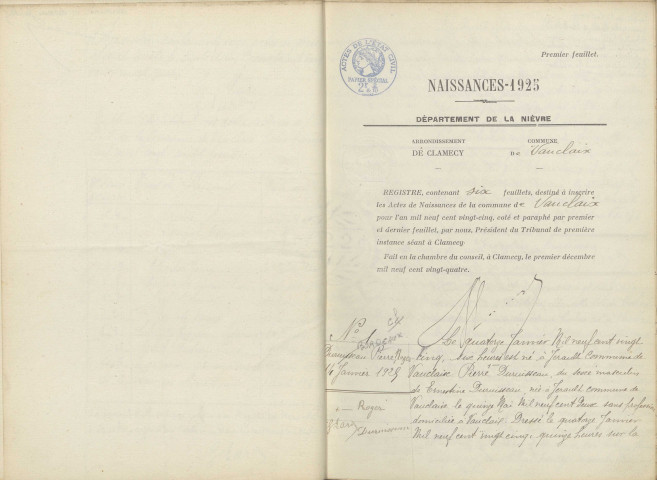 Premier feuillet.
ACTES DE L'ÉTAT CIVIL
PAPIER SPÉCIAL
NAISSANCES-1925
DÉPARTEMENT DE LA NIÈVRE
ARRONDISSEMENT
DE CLAMECY
COMMUNE
De Vauclaix
REGISTRE, contenant six feuillets, destiné à inscrire
les Actes de Naissances de la commune de Vauclaix
pour l'an mil neuf cent vingt-cinq, coté et paraphé par premier
et dernier feuillet, par nous, Président du Tribunal de première
instance séant à Clamecy.
Fait en la chambre du conseil, à Clamecy, le premier décembre
mil neuf cent vingt-quatre.
No 1
Pierre Roger
14 Janvier 1925
Roger
Le quatorze Janvier Mil neuf cent vingt
cinq, heures est né à commune de
Vauclaix Pierre du sexe masculin
de Ernestine née à commune de
Vauclaix le quinze Mai Mil neuf cent deux sans profession
domiciliée à Vauclaix. Dressé le quatorze Janvier
Mil neuf cent vingt cinq, quinze heures sur la